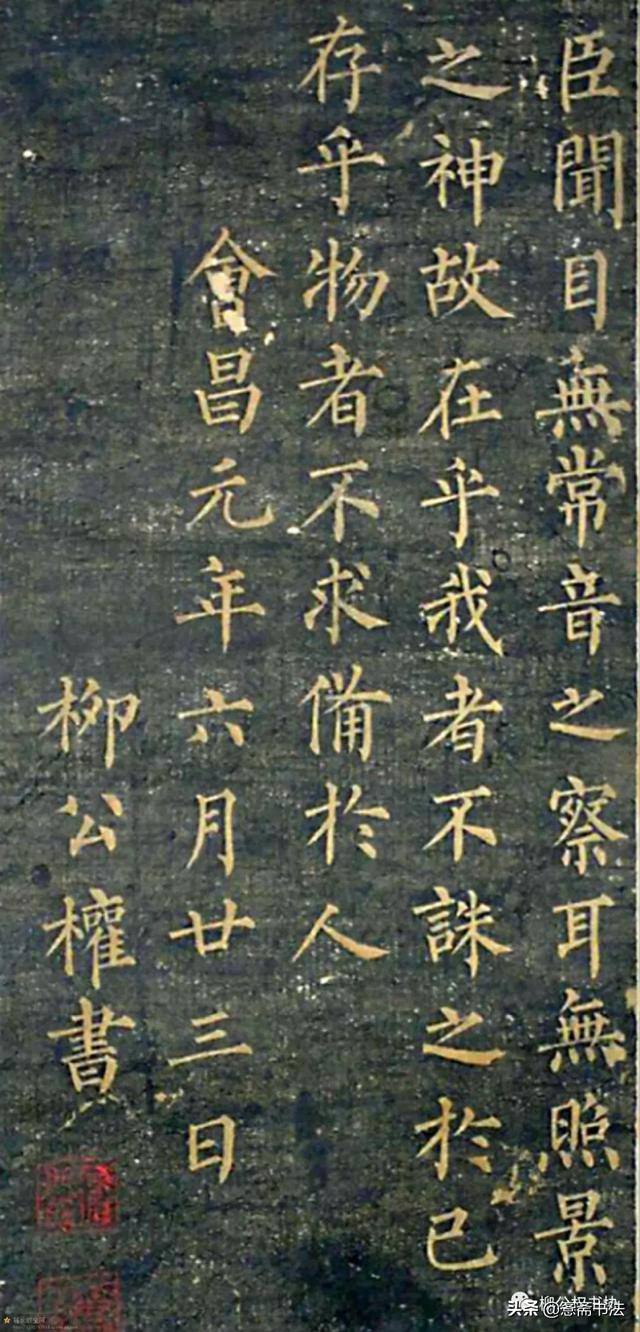 臣聞目無常音之察耳無照景
之神故在乎我者不誅之於已
存乎物者不求備於人
會昌元年六月廿三日
柳公權書
柳公权书协
头条@惷斋书法